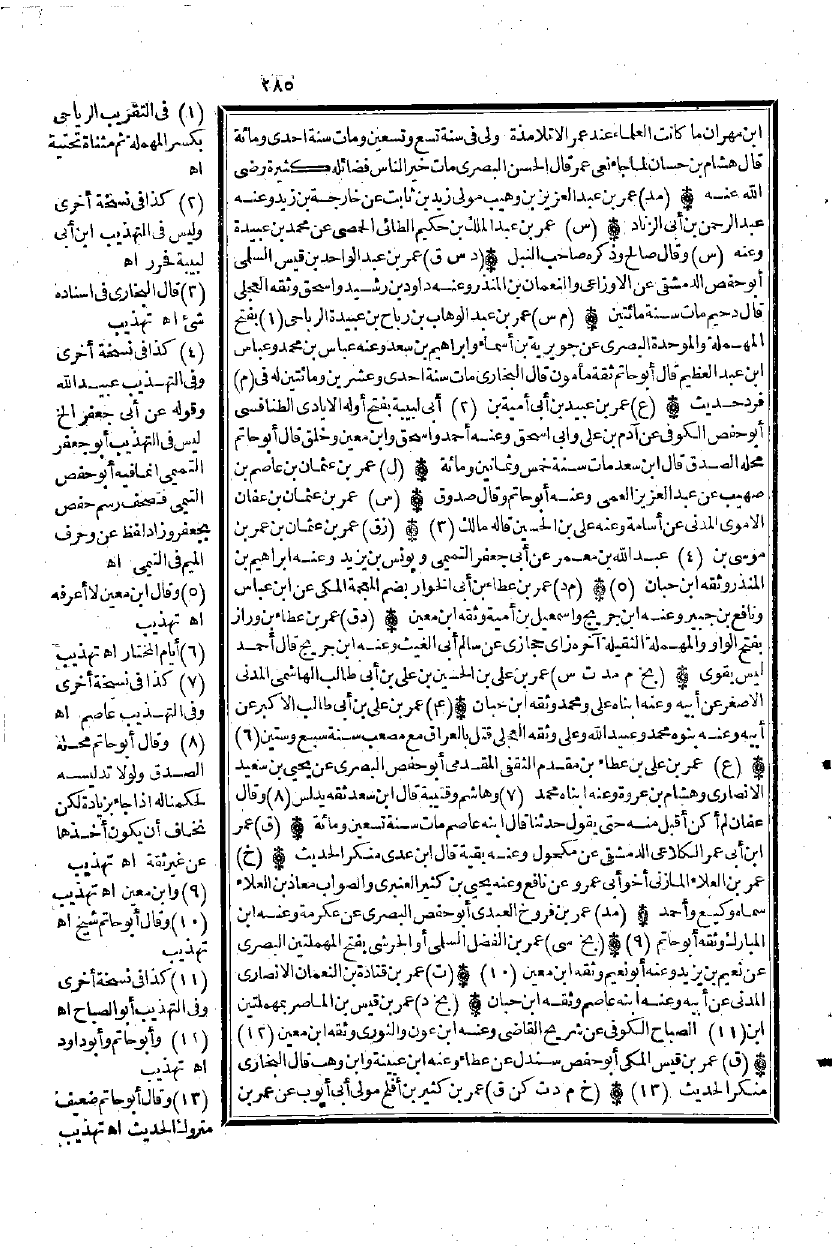 ٢٨٥
ابن مهران ما كانت العلماء عند عمر الا تلامذة ولى فى سنة تسع وتسعين ومات سنة احدى ومائة
قال هشام بن حسان لما جاء نعى عمر قال الحسن البصرى مات خير الناس فضائله كثيرة رضى
الله عنه ۞ (مد) عمر بن عبد العزيز بن وهيب مولى زيد بن ثابت عن خارجة بن زيد وعنه
عبد الرحمن بن أبى الزناد ۞ (س) عمر بن عبد الملك بن حكيم الطائى الحمصى عن محمد بن عبيدة
وعنه (س) وقال صالح وذكره صاحب النبل ۞ (د س ق) عمر بن عبد الواحد بن قيس السلمى
أبو حفص الدمشقى عن الاوزاعى والنعمان بن المنذر وعنه داود بن رشيد واسحق وثقه العجلى
قال دحيم مات سنة مائتين ۞ (م س) عمر بن عبد الوهاب بن رياح بن عبيدة الرياحى (١) بفتح
المهملة والموحدة البصرى عن جويرية بن أسماء وابراهيم بن سعد وعنه عباس بن محمد وعباس
ابن عبد العظيم قال أبو حاتم ثقة مأمون قال البخارى مات سنة احدى وعشرين ومائتين له فى (م)
فرد حديث ۞ (ع) عمر بن عبيد بن أبى أمية بن (٢) أبى لبيبة بفتح أوله الايادى الطنافسى
أبو حفص الكوفى عن آدم بن على وابى اسحق وعنه أحمد واسحق وابن معين وخلق قال أبو حاتم
محله الصدق قال ابن سعد مات سنة خمس وثمانين ومائة ۞ (ل) عمر بن عثمان بن عاصم بن
صهيب عن عبد العزيز العمى وعنه أبو حاتم وقال صدوق ۞ (س) عمر بن عثمان بن عفان
الاموى المدنى عن أسامة وعنه على بن الحسين قاله مالك (٣) ۞ (زق) عمر بن عثمان بن عمر بن
موسى بن (٤) عبد الله بن معمر عن أبى جعفر التميمى ويونس بن يزيد وعنه ابراهيم بن
المنذر وثقه ابن حبان (٥) ۞ (م د) عمر بن عطاء بن أبى الخوار بضم المعجمة المكى عن ابن عباس
ونافع بن جبير وعنه ابن جريج واسمعيل بن أمية وثقه ابن معين ۞ (دق) عمر بن عطاء بن وراز
بفتح الواو والمهملة الثقيلة آخره زاى حجازى عن سالم أبى الغيث وعنه ابن جريج قال أحمد
ليس بقوى ۞ (بخ م مد ت س) عمر بن على بن الحسين بن على بن أبى طالب الهاشمى المدنى
الاصغر عن أبيه وعنه ابناه على ومحمد وثقه ابن حبان ۞ (٤) عمر بن على بن أبى طالب الاكبر عن
أبيه وعنه بنوه محمد وعبيد الله وعلى وثقه العجلى قتل بالعراق مع مصعب سنة سبع وستين (٦)
۞ (ع) عمر بن على بن عطاء بن مقدم الثقفى المقدمى أبو حفص البصرى عن يحيى بن سعيد
الانصارى وهشام بن عروة وعنه ابناه محمد (٧) وهاشم وقتيبة قال ابن سعد ثقة يدلس (٨) وقال
عفان لم أكن أقبل منه حتى يقول حدثنا قال ابنه عاصم مات سنة تسعين ومائة ۞ (ق) عمر
ابن أبى عمر الكلاعى الدمشقى عن مكحول وعنه بقية قال ابن عدى منكر الحديث ۞ (خ)
عمر بن العلاء المازنى أخو أبى عمرو عن نافع وعنه يحيى بن كثير العنبرى والصواب معاذ بن العلاء
سماه وكيع وأحمد ۞ (مد) عمر بن فروخ العبدى أبو حفص البصرى عن عكرمة وعنه ابن
المبارك وثقه أبو حاتم (٩) ۞ (بخ سى) عمر بن الفضل السلمى أو الحرشى بفتح المهملتين البصرى
عن نعيم بن يزيد وعنه أبو نعيم وثقه ابن معين (١٠) ۞ (ت) عمر بن قتادة بن النعمان الانصارى
المدنى عن أبيه وعنه ابنه عاصم وثقه ابن حبان ۞ (بخ د) عمر بن قيس بن الماصر بمهملتين
ابن (١١) الصباح الكوفى عن شريح القاضى وعنه ابن عون والثورى وثقه ابن معين (١٢)
۞ (ق) عمر بن قيس المكى أبو حفص سندل عن عطاء وعنه ابن عيينة وابن وهب قال البخارى
منكر الحديث (١٣) ۞ (خ م د ت كن ق) عمر بن كثير بن أفلح مولى أبى أيوب عن عمر بن
(١) فى التقريب الرياحى
بكسر المهملة ثم مثناة تحتية
اه
(٢) كذا فى نسخة أخرى
وليس فى التهذيب ابن أبى
لبيبة فحرر اه
(٣) قال البخارى فى اسناده
شئ اه تهذيب
(٤) كذا فى نسخة أخرى
وفى التهذيب عبيد الله
وقوله عن أبى جعفر الخ
ليس فى التهذيب أبو جعفر
التميمى انما فيه أبو حفص
التيمى فصحف رسم حفص
بجعفر وزاد لفظ عن وحرف
الميم فى التيمى اه
(٥) وقال ابن معين لا أعرفه
اه تهذيب
(٦) أيام المختار اه تهذيب
(٧) كذا فى نسخة أخرى
وفى التهذيب عاصم اه
(٨) وقال أبو حاتم محله
الصدق ولولا تدليسه
لحكمنا له اذا جاء بزيادة لكن
نخاف أن يكون أخذها
عن غير ثقة اه تهذيب
(٩) وابن معين اه تهذيب
(١٠) وقال أبو حاتم شيخ اه
تهذيب
(١١) كذا فى نسخة أخرى
وفى التهذيب أبو الصباح اه
(١٢) وأبو حاتم وأبو داود
اه تهذيب
(١٣) وقال أبو حاتم ضعيف
متروك الحديث اه تهذيب